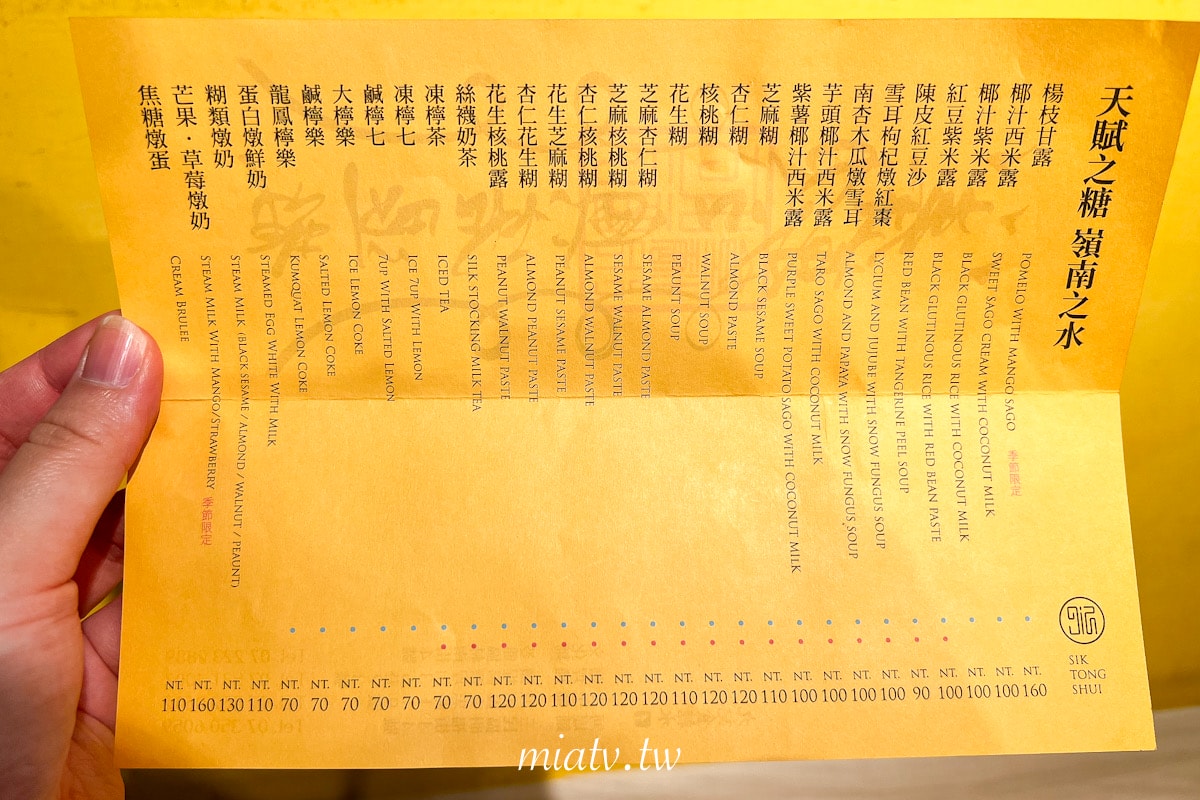 天賦之糖 嶺南之水
SIK
TONG
SHUI
楊枝甘露 POMELO WITH MANGO SAGO 季節限定 NT. 160
椰汁西米露 SWEET SAGO CREAM WITH COCONUT MILK NT. 100
椰汁紫米露 BLACK GLUTINOUS RICE WITH COCONUT MILK NT. 100
紅豆紫米露 BLACK GLUTINOUS RICE WITH RED BEAN PASTE NT. 100
陳皮紅豆沙 RED BEAN WITH TANGERINE PEEL SOUP NT. 90
雪耳枸杞燉紅棗 LYCIUM AND JUJUBE WITH SNOW FUNGUS SOUP NT. 100
南杏木瓜燉雪耳 ALMOND AND PAPAYA WITH SNOW FUNGUS SOUP NT. 100
芋頭椰汁西米露 TARO SAGO WITH COCONUT MILK NT. 100
紫薯椰汁西米露 PURPLE SWEET POTATO SAGO WITH COCONUT MILK NT. 100
芝麻糊 BLACK SESAME SOUP NT. 110
杏仁糊 ALMOND PASTE NT. 120
核桃糊 WALNUT SOUP NT. 120
花生糊 PEAUNT SOUP NT. 110
芝麻杏仁糊 SESAME ALMOND PASTE NT. 120
芝麻核桃糊 SESAME WALNUT PASTE NT. 120
杏仁核桃糊 ALMOND WALNUT PASTE NT. 120
花生芝麻糊 PEANUT SESAME PASTE NT. 110
杏仁花生糊 ALMOND PEANUT PASTE NT. 120
花生核桃露 PEANUT WALNUT PASTE NT. 120
絲襪奶茶 SILK STOCKING MILK TEA NT. 70
凍檸茶 ICED TEA NT. 70
凍檸七 ICE 7UP WITH LEMON NT. 70
鹹檸七 7UP WITH SALTED LEMON NT. 70
大檸樂 ICE LEMON COKE NT. 70
鹹檸樂 SALTED LEMON COKE NT. 70
龍鳳檸樂 KUMQUAT LEMON COKE NT. 70
蛋白燉鮮奶 STEAMED EGG WHITE WITH MILK NT. 110
糊類燉奶 STEAM MILK (BLACK SESAME / ALMOND / WALNUT / PEAUNT) NT. 130
芒果・草莓燉奶 STEAM MILK WITH MANGO/STRAWBERRY 季節限定 NT. 160
焦糖燉蛋 CREAM BRULEE NT. 110
miatv.tw